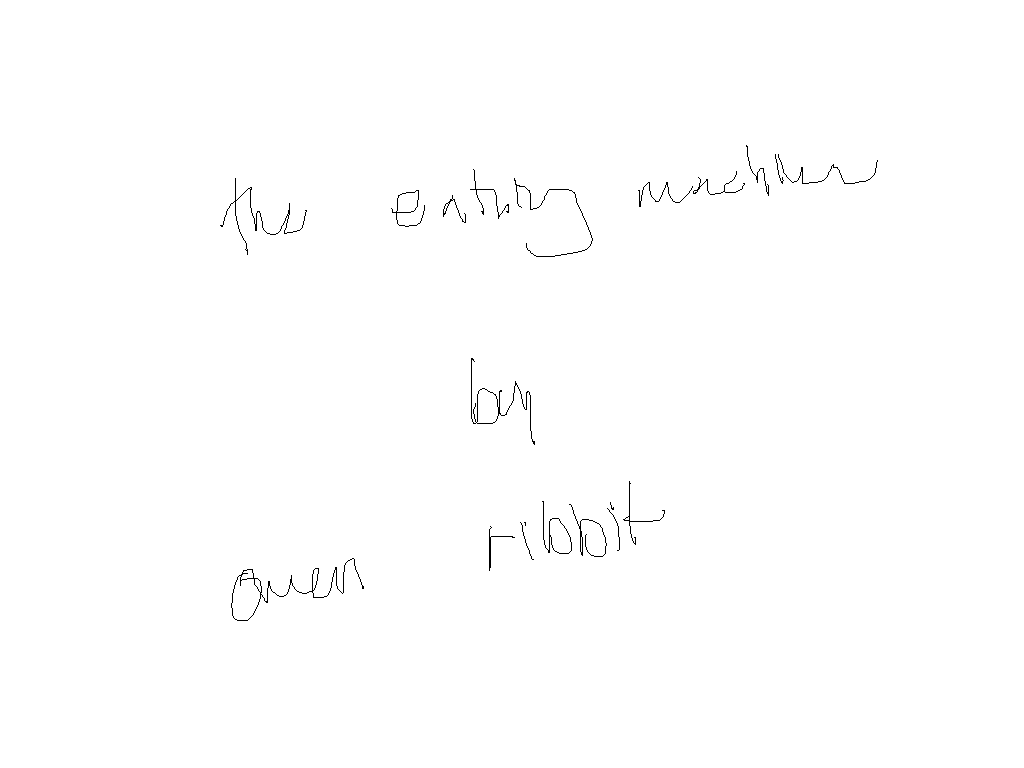 the eating machine
by
owen ribbit